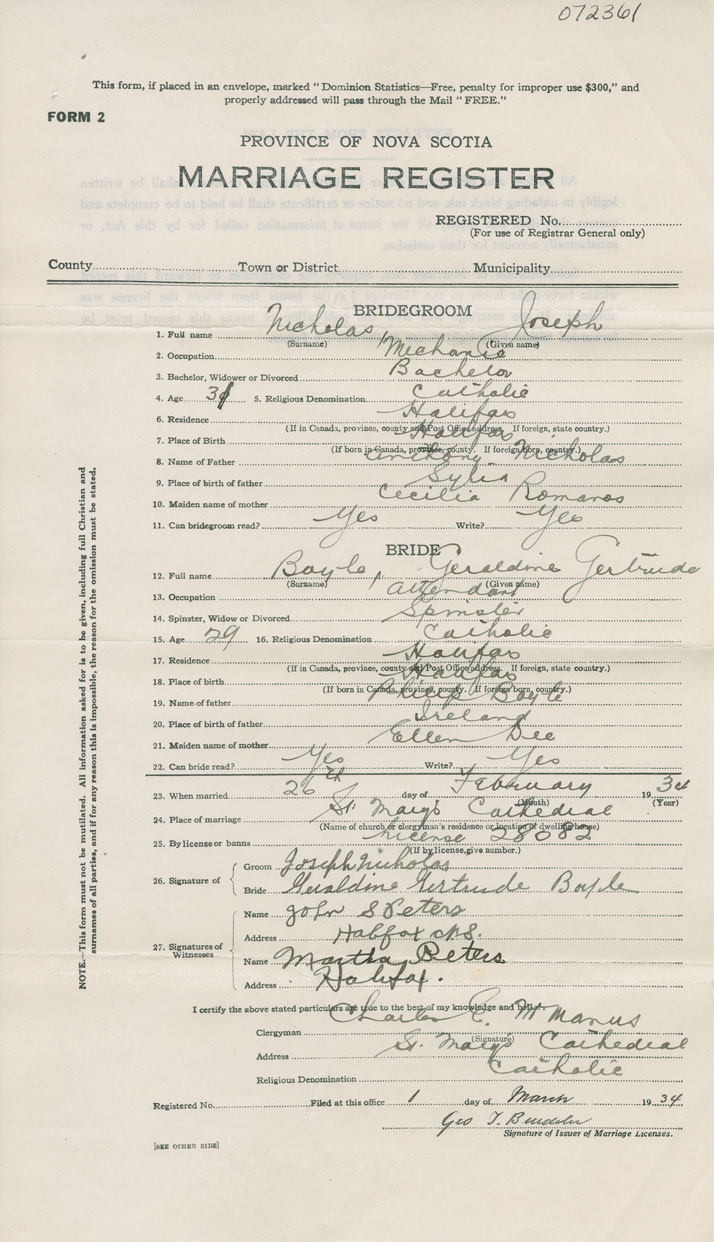 072361
This form, if placed in an envelope, marked "Dominion Statistics—Free, penalty for improper use $300," and
properly addressed will pass through the Mail "FREE."
FORM 2
PROVINCE OF NOVA SCOTIA
MARRIAGE REGISTER
REGISTERED No.
(For use of Registrar General only)
County Town or District Municipality
BRIDEGROOM
1. Full name Nicholas, Joseph
(Surname) (Given name)
2. Occupation Mechanic
3. Bachelor, Widower or Divorced Bachelor
4. Age 31 5. Religious Denomination Catholic
6. Residence Halifax
(If in Canada, province, county and Post Office address. If foreign, state country.)
7. Place of Birth Halifax
(If born in Canada, province, county. If foreign born, country.)
8. Name of Father Anthony Nicholas
9. Place of birth of father Syria
10. Maiden name of mother Cecilia Romanos
11. Can bridegroom read? Yes Write? Yes
BRIDE
12. Full name Boyle, Geraldine Gertrude
(Surname) (Given name)
13. Occupation Attendant
14. Spinster, Widow or Divorced Spinster
15. Age 29 16. Religious Denomination Catholic
17. Residence Halifax
(If in Canada, province, county and Post Office address. If foreign, state country.)
18. Place of birth Halifax
(If born in Canada, province, county. If foreign born, country.)
19. Name of father Philip Boyle
20. Place of birth of father Ireland
21. Maiden name of mother Ellen Dee
22. Can bride read? Yes Write? Yes
23. When married 26th day of February 1934
(Month) (Year)
24. Place of marriage St. Mary's Cathedral
(Name of church or clergyman's residence or location of dwelling house)
25. By license or banns License 28082
(If by license, give number.)
26. Signature of Groom Joseph Nicholas
Bride Geraldine Gertrude Boyle
27. Signatures of Witnesses Name John S Peters
Address Halifax N.S.
Name Martha Peters
Address Halifax.
I certify the above stated particulars are true to the best of my knowledge and belief.
Clergyman Charles E. McManus
(Signature)
Address St. Mary's Cathedral
Religious Denomination Catholic
Registered No. Filed at this office 1 day of March 1934
Geo T.
Signature of Issuer of Marriage Licenses.
[SEE OTHER SIDE]
NOTE.—This form must not be mutilated. All information asked for is to be given, including full Christian and
surnames of all parties, and if for any reason this is impossible, the reason for the omission must be stated.